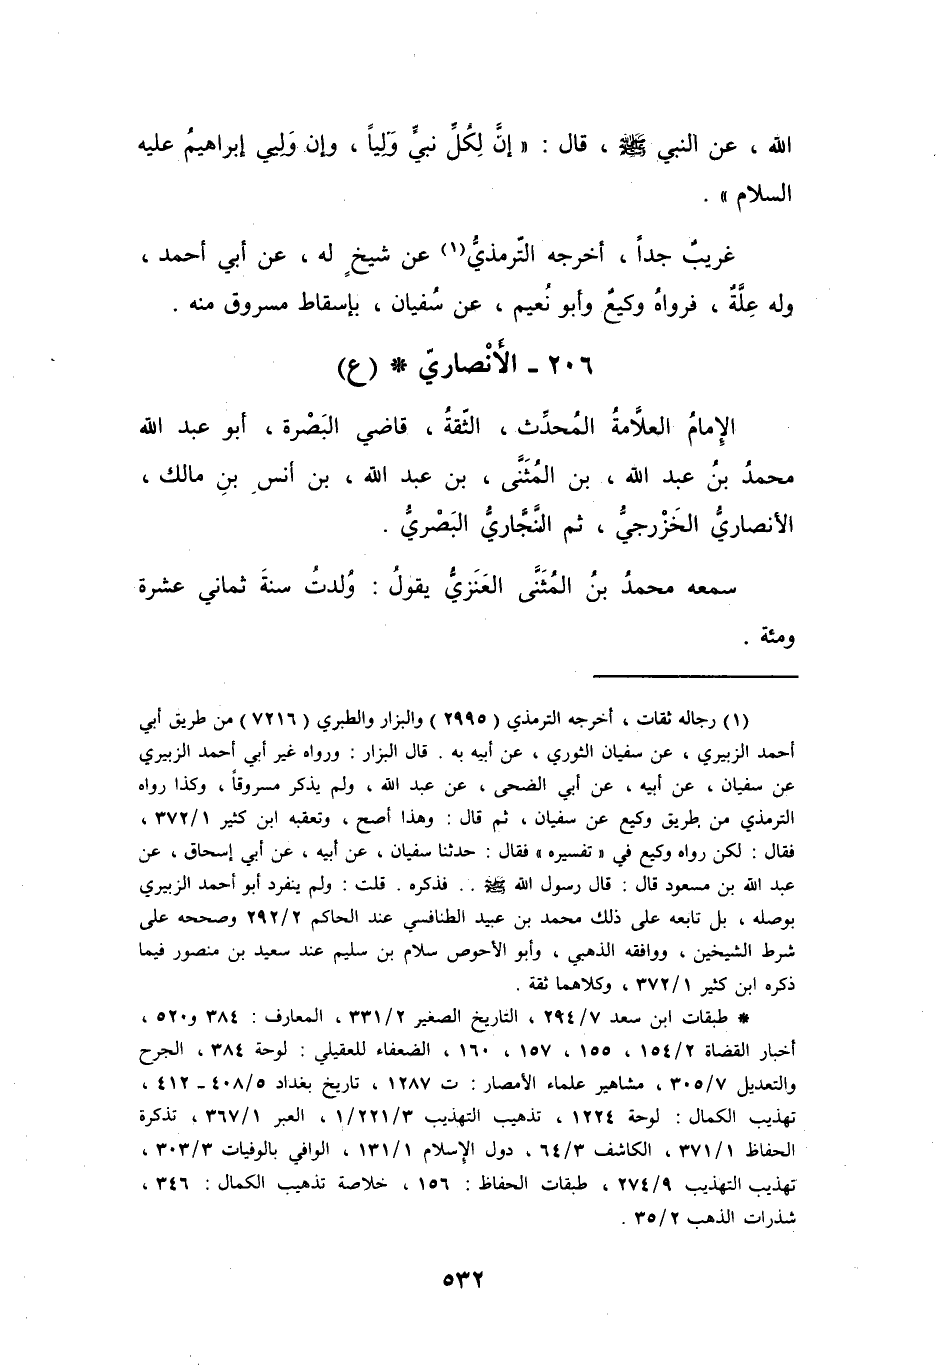 الله ، عن النبي ﷺ ، قال : « إنَّ لِكُلِّ نبيٍّ وَلِياً ، وإن وَلِيي إبراهيمُ عليه
السلام » .
غريبٌ جداً ، أخرجه التّرمذيُّ(١) عن شيخٍ له ، عن أبي أحمد ،
وله عِلَّةٌ ، فرواهُ وكيعٌ وأبو نُعيم ، عن سُفيان ، بإسقاط مسروق منه .
٢٠٦ - الأَنْصاريّ * (ع)
الإمامُ العلَّامةُ المُحدِّث ، الثّقةُ ، قاضي البَصْرة ، أبو عبد الله
محمدُ بنُ عبد الله ، بن المُثَنَّى ، بن عبد الله ، بن أنسِ بنِ مالك ،
الأنصاريُّ الخَزْرجيُّ ، ثم النَّجَّاريُّ البَصْريُّ .
سمعه محمدُ بنُ المُثَنَّى العَنَزيُّ يقولُ : وُلدتُ سنةَ ثماني عشرة
ومئة .
(١) رجاله ثقات ، أخرجه الترمذي ( ٢٩٩٥ ) والبزار والطبري ( ٧٢١٦ ) من طريق أبي
أحمد الزبيري ، عن سفيان الثوري ، عن أبيه به . قال البزار : ورواه غير أبي أحمد الزبيري
عن سفيان ، عن أبيه ، عن أبي الضحى ، عن عبد الله ، ولم يذكر مسروقاً ، وكذا رواه
الترمذي من طريق وكيع عن سفيان ، ثم قال : وهذا أصح ، وتعقبه ابن كثير ٣٧٢/١ ،
فقال : لكن رواه وكيع في « تفسيره » فقال : حدثنا سفيان ، عن أبيه ، عن أبي إسحاق ، عن
عبد الله بن مسعود قال : قال رسول الله ﷺ . . فذكره . قلت : ولم ينفرد أبو أحمد الزبيري
بوصله ، بل تابعه على ذلك محمد بن عبيد الطنافسي عند الحاكم ٢٩٢/٢ وصححه على
شرط الشيخين ، ووافقه الذهبي ، وأبو الأحوص سلام بن سليم عند سعيد بن منصور فيما
ذكره ابن كثير ٣٧٢/١ ، وكلاهما ثقة .
* طبقات ابن سعد ٢٩٤/٧ ، التاريخ الصغير ٣٣١/٢ ، المعارف : ٣٨٤ و٥٢٠ ،
أخبار القضاة ١٥٤/٢ ، ١٥٥ ، ١٥٧ ، ١٦٠ ، الضعفاء للعقيلي : لوحة ٣٨٤ ، الجرح
والتعديل ٣٠٥/٧ ، مشاهير علماء الأمصار : ت ١٢٨٧ ، تاريخ بغداد ٤٠٨/٥ - ٤١٢ ،
تهذيب الكمال : لوحة ١٢٢٤ ، تذهيب التهذيب ١/٢٢١/٣ ، العبر ٣٦٧/١ ، تذكرة
الحفاظ ٣٧١/١ ، الكاشف ٦٤/٣ ، دول الإسلام ١٣١/١ ، الوافي بالوفيات ٣٠٣/٣ ،
تهذيب التهذيب ٢٧٤/٩ ، طبقات الحفاظ : ١٥٦ ، خلاصة تذهيب الكمال : ٣٤٦ ،
شذرات الذهب ٣٥/٢ .
٥٣٢